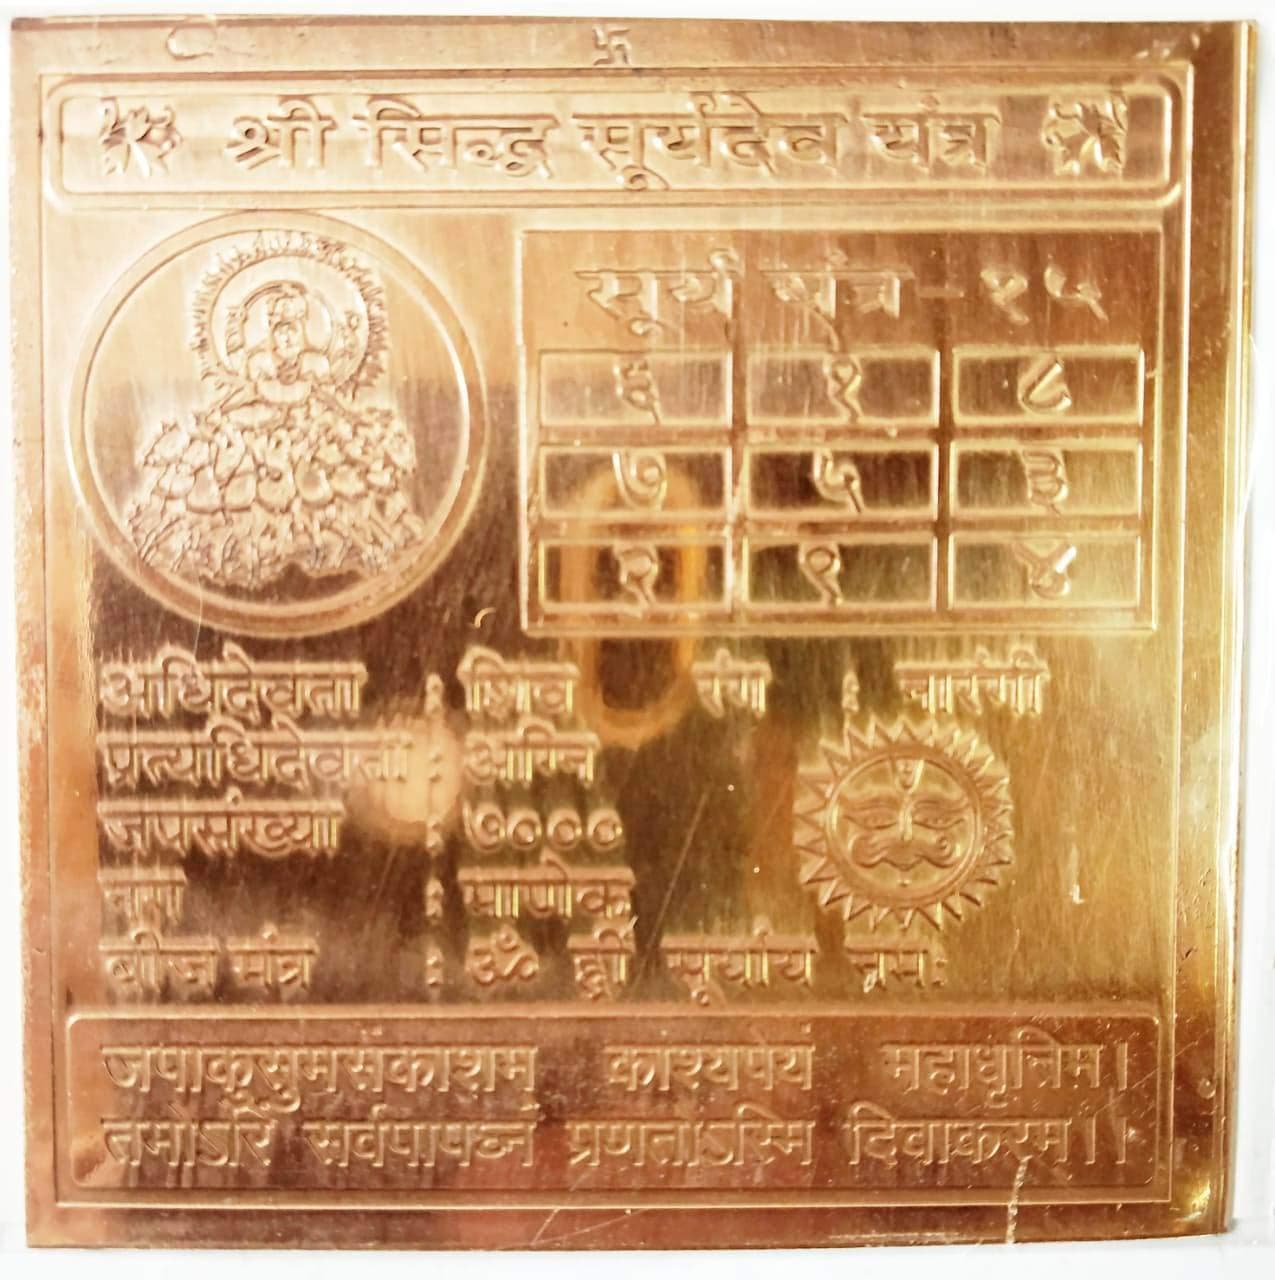 श्री सिद्ध सुर्यदेव यंत्र
सुर्य यंत्र - १५
६ १ ८
७ ५ ३
२ ९ ४
अधिदेवता : शिव रंग : नारंगी
प्रत्याधिदेवता : अग्नि
जपसंख्या : ७०००
नग : माणेक
बीज मंत्र : ॐ ह्रीं सूर्याय नमः
जपाकुसुमसंकाशम् काश्यपेयं महाधृत्तिम।
तमोऽरिं सर्वपापघ्नं प्रणतोऽस्मि दिवाकरम।।